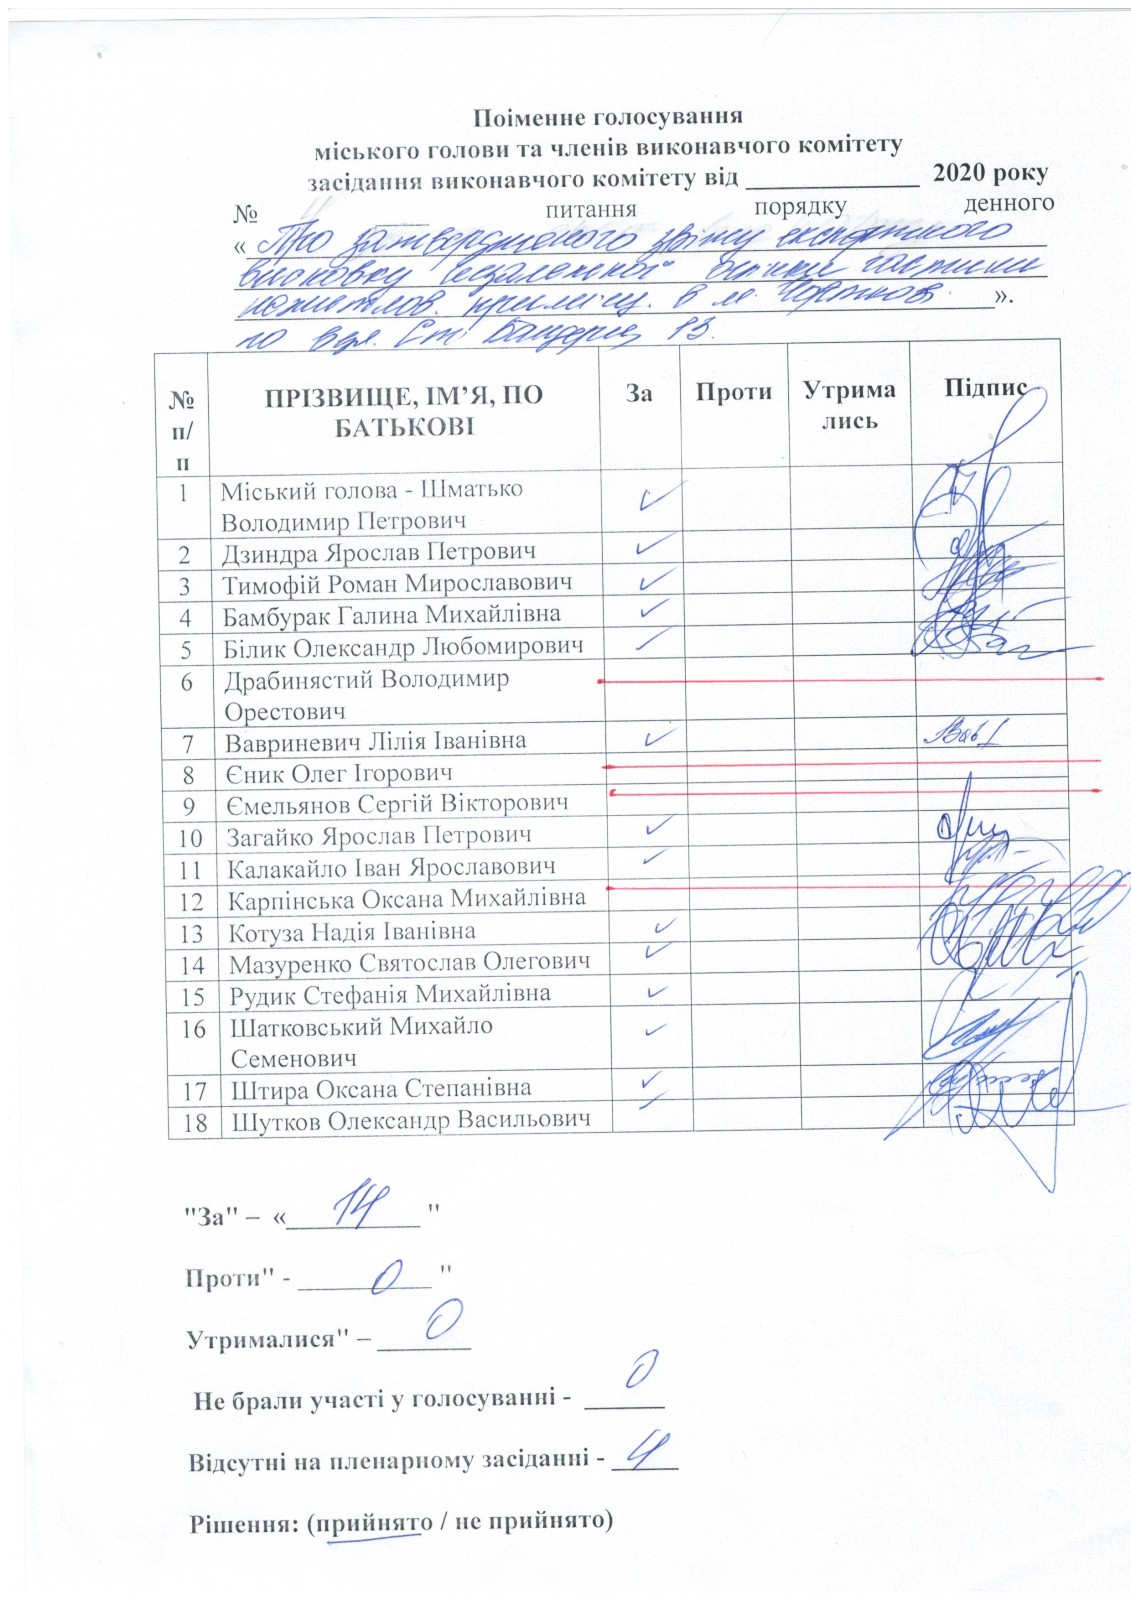 Поіменне голосування
міського голови та членів виконавчого комітету
засідання виконавчого комітету від _____________ 2020 року
№ питання порядку денного
« Про затвердження звіту експертного
висновку незалежної оцінки частини
нежитлов. приміщ. в м. ».
по вул. Ст. Бандери, 13.
№ п/п ПРІЗВИЩЕ, ІМ’Я, ПО БАТЬКОВІ За Проти Утрима лись Підпис
1 Міський голова - Шматько
Володимир Петрович ✓
2 Дзиндра Ярослав Петрович ✓
3 Тимофій Роман Мирославович ✓
4 Бамбурак Галина Михайлівна ✓
5 Білик Олександр Любомирович ✓
6 Драбинястий Володимир
Орестович
7 Вавриневич Лілія Іванівна ✓
8 Єник Олег Ігорович
9 Ємельянов Сергій Вікторович
10 Загайко Ярослав Петрович ✓
11 Калакайло Іван Ярославович ✓
12 Карпінська Оксана Михайлівна
13 Котуза Надія Іванівна ✓
14 Мазуренко Святослав Олегович ✓
15 Рудик Стефанія Михайлівна ✓
16 Шатковський Михайло
Семенович ✓
17 Штира Оксана Степанівна ✓
18 Шутков Олександр Васильович ✓
"За" – « 14 "
Проти" - 0 "
Утрималися" – 0
Не брали участі у голосуванні - 0
Відсутні на пленарному засіданні - 4
Рішення: (прийнято / не прийнято)